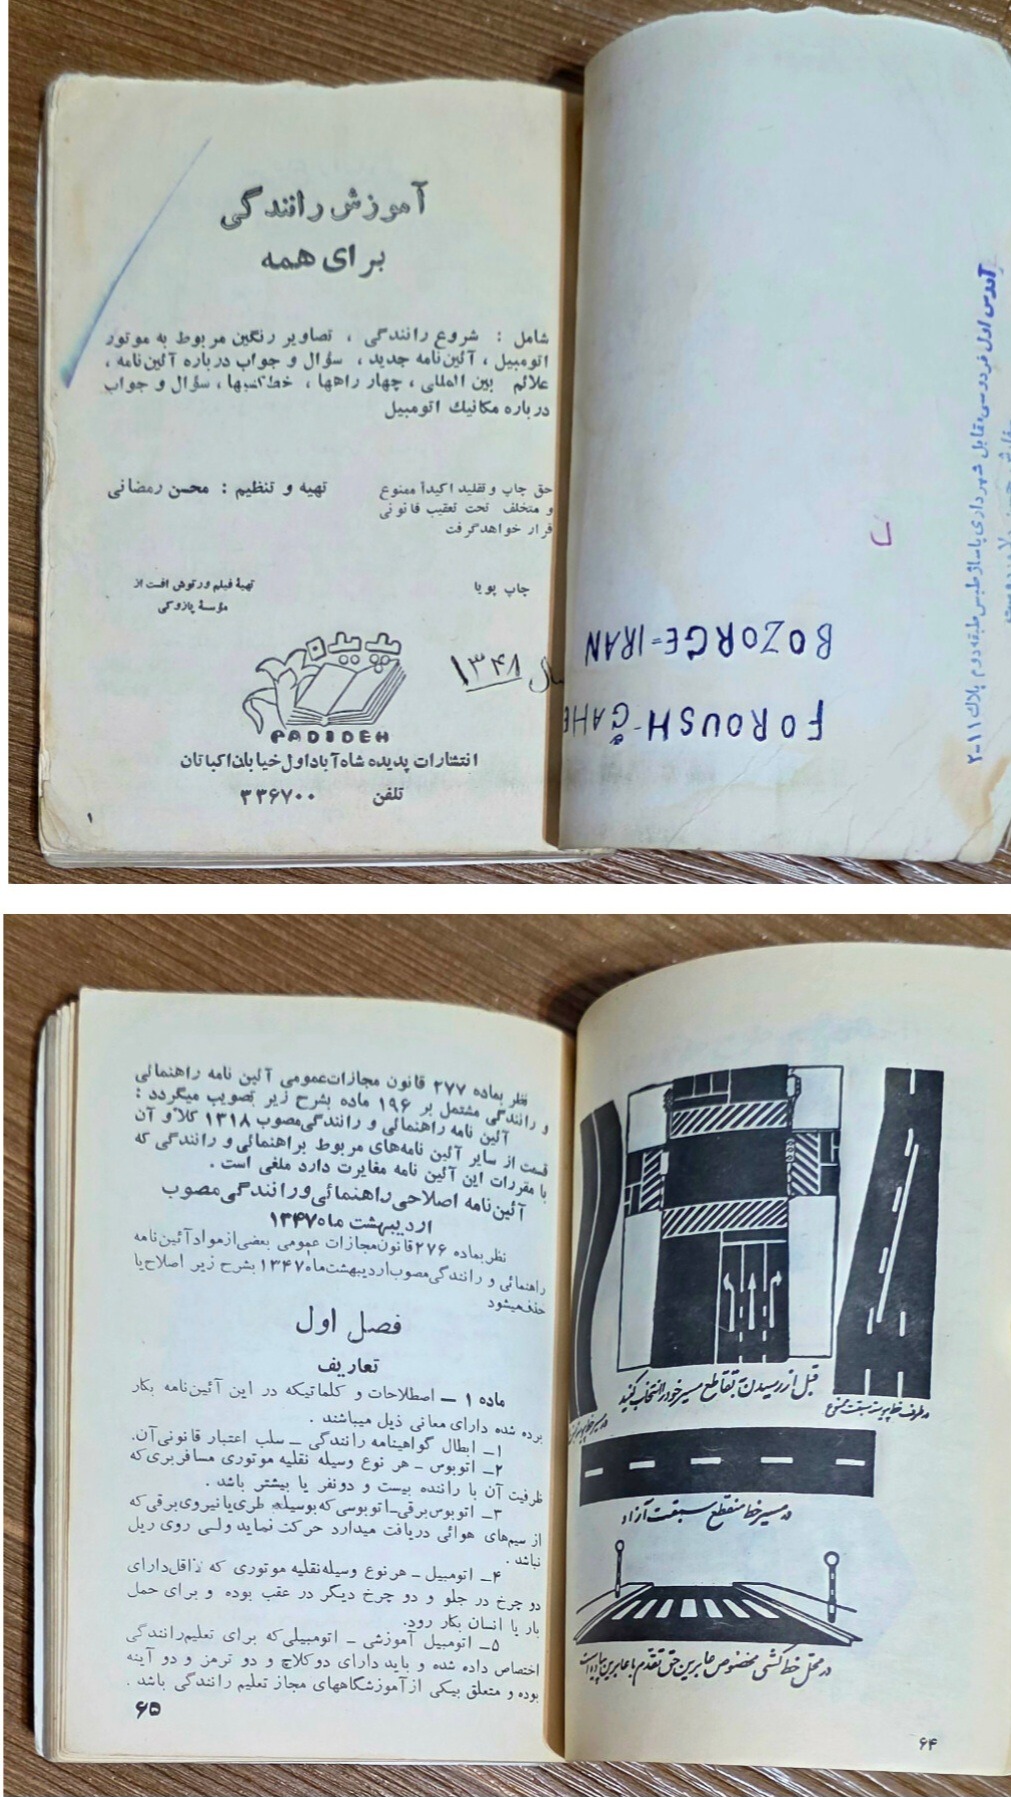 آموزش رانندگی
برای همه
شامل : شروع رانندگی ، تصاویر رنگین مربوط به موتور
اتومبیل ، آئین‌نامه جدید ، سؤال و جواب درباره آئین‌نامه ،
علائم بین المللی ، چهار راهها ، خط‌کشیها ، سؤال و جواب
درباره مکانیك اتومبیل
حق چاپ و تقلید اکیداً ممنوع
و متخلف تحت تعقیب قانونی
قرار خواهد گرفت
تهیه و تنظیم : محسن رمضانی
چاپ پویا
تهیهٔ فیلم و رتوش افست از
مؤسسهٔ پازوکی
سال ۱۳۴۸
پدیده
PADIDEH
انتشارات پدیده شاه‌آباد اول خیابان اکباتان
تلفن ۳۳۶۷۰۰
۱
FOROUSH-GAHE
BOZORGE-IRAN
آدرس اول فردوسی مقابل شهرداری پاساژ طبس طبقه دوم پلاك ۱۱-۲
نظر بماده ۲۷۷ قانون مجازات عمومی آئین نامه راهنمائی
و رانندگی مشتمل بر ۱۹۶ ماده بشرح زیر تصویب میگردد :
آئین نامه راهنمائی و رانندگی مصوب ۱۳۱۸ کلا و آن
قسمت از سایر آئین نامه‌های مربوط براهنمائی و رانندگی که
با مقررات این آئین نامه مغایرت دارد ملغی است .
آئین‌نامه اصلاحی راهنمائی و رانندگی مصوب
اردیبهشت ماه ۱۳۴۷
نظر بماده ۲۷۶ قانون مجازات عمومی بعضی از مواد آئین‌نامه
راهنمائی و رانندگی مصوب اردیبهشت‌ماه ۱۳۴۷ بشرح زیر اصلاح یا
حذف میشود
فصل اول
تعاریف
ماده ۱ – اصطلاحات و کلماتیکه در این آئین‌نامه بکار
برده شده دارای معانی ذیل میباشند .
۱– ابطال گواهینامه رانندگی – سلب اعتبار قانونی آن.
۲– اتوبوس – هر نوع وسیله نقلیه موتوری مسافربری که
ظرفیت آن با راننده بیست و دونفر یا بیشتر باشد .
۳– اتوبوس برقی–اتوبوسی که بوسیله طری یا نیروی برقی که
از سیم‌های هوائی دریافت میدارد حرکت نماید ولی روی ریل
نباشد .
۴– اتومبیل – هر نوع وسیله نقلیه موتوری که لااقل دارای
دو چرخ در جلو و دو چرخ دیگر در عقب بوده و برای حمل
بار یا انسان بکار رود.
۵– اتومبیل آموزشی – اتومبیلی که برای تعلیم رانندگی
اختصاص داده شده و باید دارای دو کلاچ و دو ترمز و دو آینه
بوده و متعلق بیکی از آموزشگاههای مجاز تعلیم رانندگی باشد .
۶۵
قبل از رسیدن به تقاطع مسیر خود را انتخاب کنید
در طرف خط پیوسته سبقت ممنوع
در مسیر خط منقطع سبقت آزاد
در محل خط کشی مخصوص عابرین حق تقدم با عابرین پیاده است
۶۴